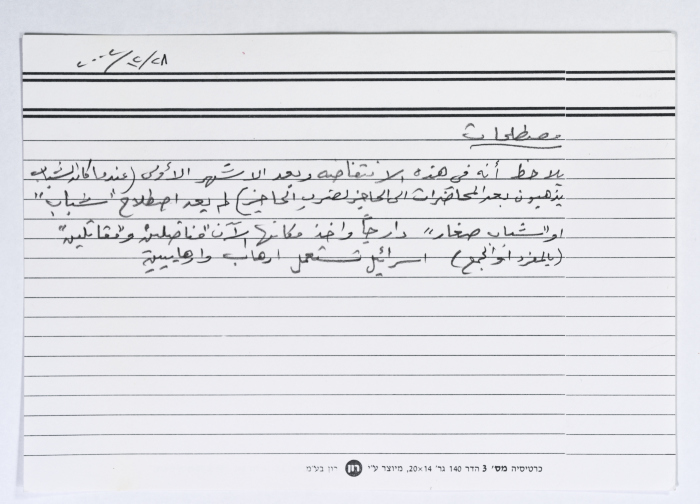 ٢٠٠٢/٢/٢٨
مصطلحات
يلاحظ أنه في هذه الانتفاضه وبعد الاشهر الأولى (عندما كان الشباب
يذهبون بعد المحاضرات الى الحاجز لضرب الحاجز) لم يعد اصطلاح "شباب"
او "شباب صغار" دارجاً واخذ مكانها الآن "مناضلين" و"مقاتلين"
(بالمفرد او الجمع) اسرائيل تستعمل ارهاب وارهابيين
כרטיסיה מס' 3 הדר 140 גר' 20x14, מיוצר ע"י רון רון בע"מ